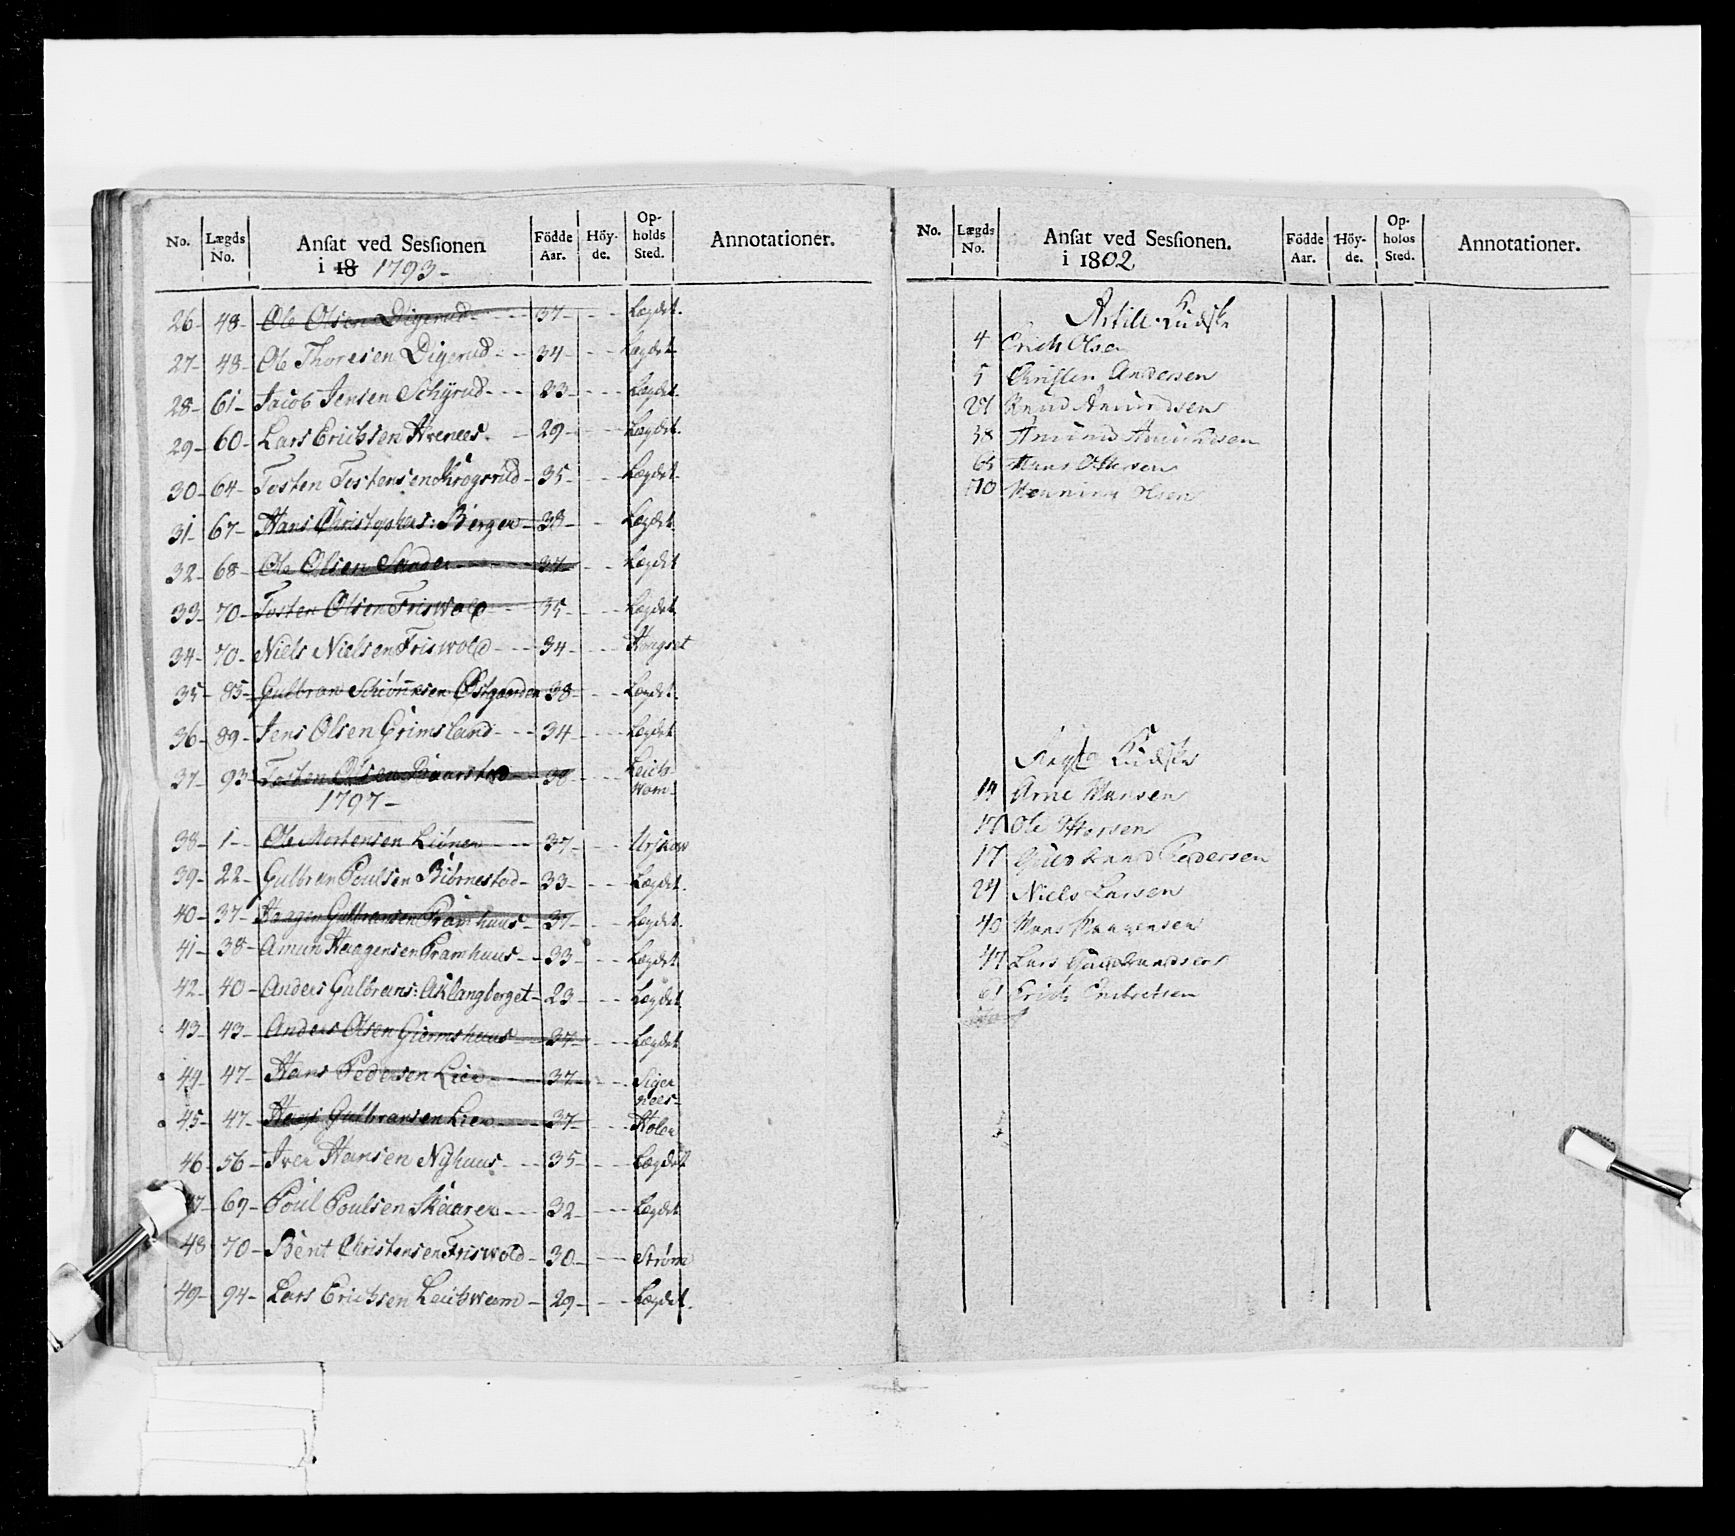 No. Lægds No. Ansat ved Sessionen i 18 1793- Födde Aar. Höy-de. Op-holds Sted. Annotationer.
26- 48- Ole Olsen Digerud - 37- Lægdet.
27- 48- Ole Thoresen Digerud - 34- Lægdet
28- 61- Jacob Jensen Schyrud - 23- Lægdet.
29- 60- Lars Erichsen Hvenees. - 29- Lægdet.
30- 64- Tosten Tostensen Krogsrud - 35- Lægdet.
31- 67- Hans Christophers: Berger - 38- Lægdet.
32- 68- Ole Olsen Sander - 37- Lægdet
33- 70- Tosten Olsen Friswold - 35- Lægdet.
34- 70- Niels Nielsen Friswold - 34- Hougset
35- 85- Gulbran Østgaarden 38- Lægdet.
36- 89- Jens Olsen Grimsland - 34- Lægdet
37- 93- Tosten Olsen - 38- Leich-
1797-
38- 1- Ole Mortensen Liönen - 37- Urskow
39- 22- Gulbran Poulsen Biörnestad - 33- Lægdet.
40- 37- Haagen Gulbransen Pramhuus - 37- Lægdet.
41- 38- Amun Haagensen Pramhuus - 33- Lægdet
42- 40- Anders Gulbrans: Aklangberget - 23- Lægdet
43- 43- Anders Olsen Giermshuus - 37- Lægdet
44- 47- Hans Pedersen Lien - 37- Siger nees-
45- 47- Gulbransen Lien - 37- Holen
46- 56- Iver Hansen Nyhuus - 35- Lægdet
47- 69- Poul Poulsen Skaaren - 32- Lægdet
48 70- Berit Christensen Friswold - 30- Strøm
49- 94- Lars Erichsen Leichwam - 29- Lægdet.
No. Lægds No. Ansat ved Sessionen. i 1802 Födde Aar. Höy-de. Op-holds Sted. Annotationer.
Artill: Kudske
4 Erich Olsen
5 Christen Andersen
Knud Amundsen
38 Amund Amundsen
65 Hans Ottersen
70 Henning Olsen
Kudske
14 Arne Hansen
Ole Ottersen
17 Gudbrand Pedersen
24 Niels Larsen
40 Hans Haagensen
47 Lars Gudbrandsen
61 Erich Embretsen